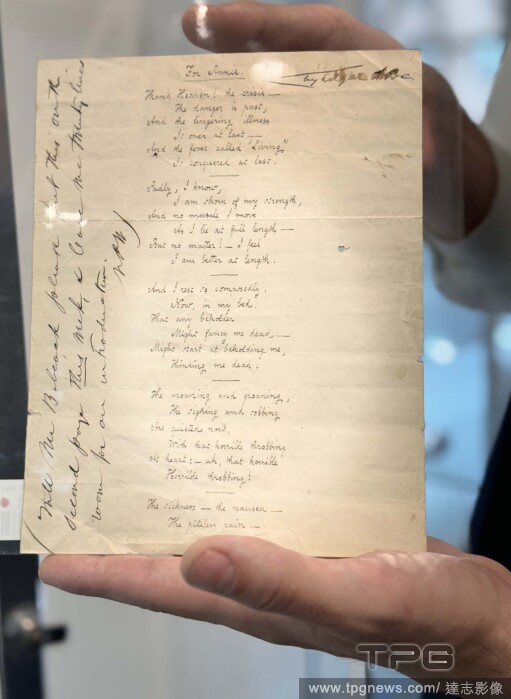 For Annie.
By Edgar A. Poe.
Thank Heaven! the crisis —
The danger is past,
And the lingering illness
Is over at last —
And the fever called "Living"
Is conquered at last.
Sadly, I know,
I am shorn of my strength,
And no muscle I move
As I lie at full length —
But no matter! — I feel
I am better at length.
And I rest so composedly,
Now, in my bed,
That any beholder
Might fancy me dead —
Might start at beholding me,
Thinking me dead.
The moaning and groaning,
The sighing and sobbing
Are quieted now,
With that horrible throbbing
At heart: — ah, that horrible
Horrible throbbing!
The sickness — the nausea —
The pitiless pain —
Will Mr Babcock please put this on the
second page this week, & leave me twenty lines
room for an introduction.
TPG
www.tpgnews.com/ 達志影像